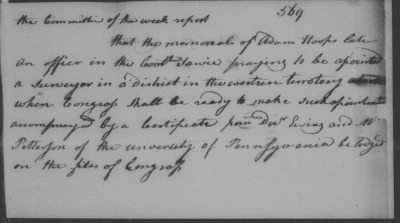 569
the Committee of the week report
that the memoreal of Adam Hoops late
an officer in the Contl Sarvice praying to be apointed
a Surveyor in a district in the western terroterey
when Congress Shall be ready to make such apointments
accompneyed by a Certificate from Docr Ewing and Mr
Petterson of the unversity of Pennsylvania be lodged
on the files of Congress